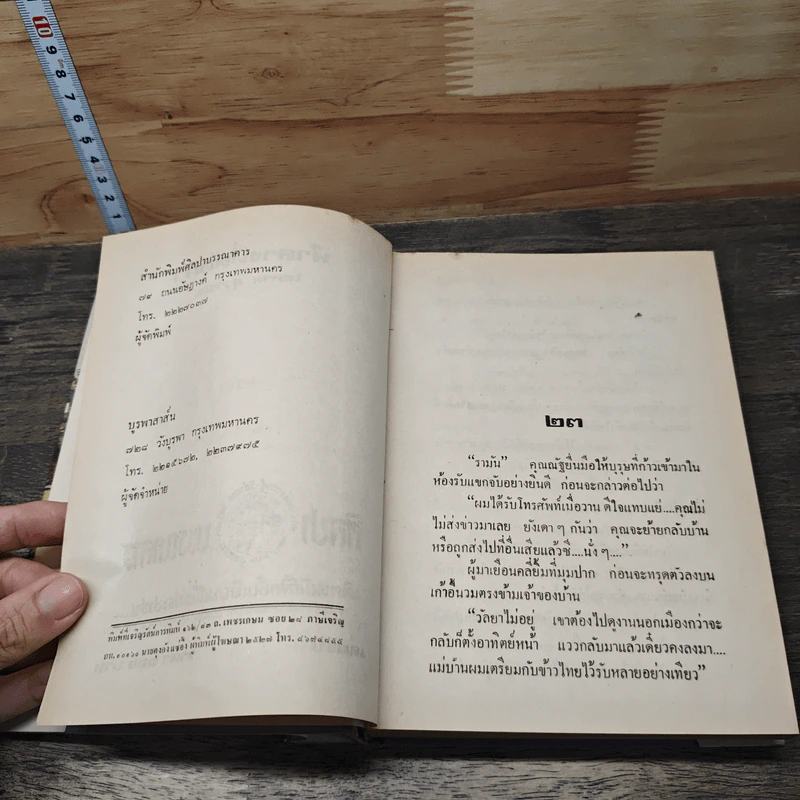 10
9
8
7
6
5
4
3
2
1
สำนักพิมพ์ศิลปาบรรณาคาร
๗๙ ถนนอัษฎางค์ กรุงเทพมหานคร
โทร. ๒๒๒๗๐๓๗
ผู้จัดพิมพ์
บูรพาสาส์น
๗๒๘ วังบูรพา กรุงเทพมหานคร
โทร. ๒๒๑๕๖๗๒, ๒๒๓๗๙๗๕
ผู้จัดจำหน่าย
พิมพ์ที่เจริญรัตน์การพิมพ์ ๑๖๒/๘๓ ถ. เพชรเกษม ซอย ๒๘ ภาษีเจริญ
กท. ๑๐๑๖๐ ผู้พิมพ์ผู้โฆษณา ๒๕๒๗ โทร. ๔๖๗๔๘๕๕
๒๓
“รามัน” คุณณัฐยื่นมือให้บุรุษที่ก้าวเข้ามาใน
ห้องรับแขกจับอย่างยินดี ก่อนจะกล่าวต่อไปว่า
“ผมได้รับโทรศัพท์เมื่อวาน ดีใจแทบแย่....คุณไม่
ไม่ส่งข่าวมาเลย ยังเดา ๆ กันว่า คุณจะย้ายกลับบ้าน
หรือถูกส่งไปที่อื่นเสียแล้วซี....นั่ง ๆ....”
ผู้มาเยือนคลี่ยิ้มที่มุมปาก ก่อนจะทรุดตัวลงบน
เก้าอี้นวมตรงข้ามเจ้าของบ้าน
“วัลยาไม่อยู่ เขาต้องไปดูงานนอกเมืองกว่าจะ
กลับก็ตั้งอาทิตย์หน้า แววกลับมาแล้วเดี๋ยวคงลงมา....
แม่บ้านผมเตรียมกับข้าวไทยไว้รับหลายอย่างเทียว”